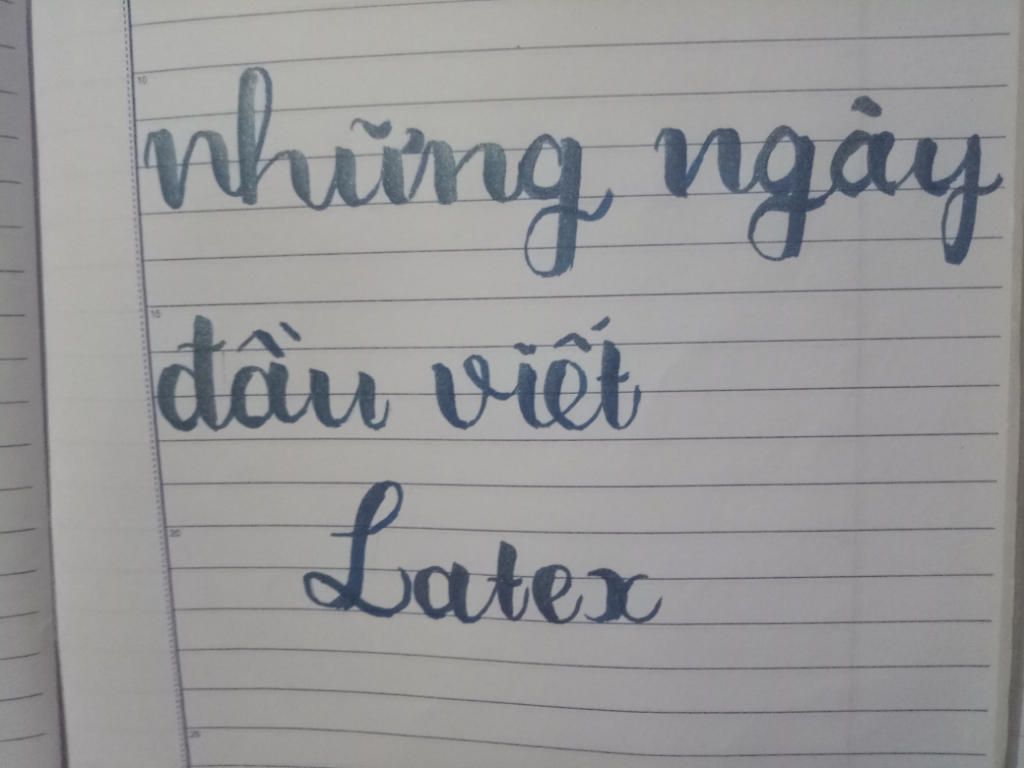 những ngày
đầu viết
Latex
10
15
20
25